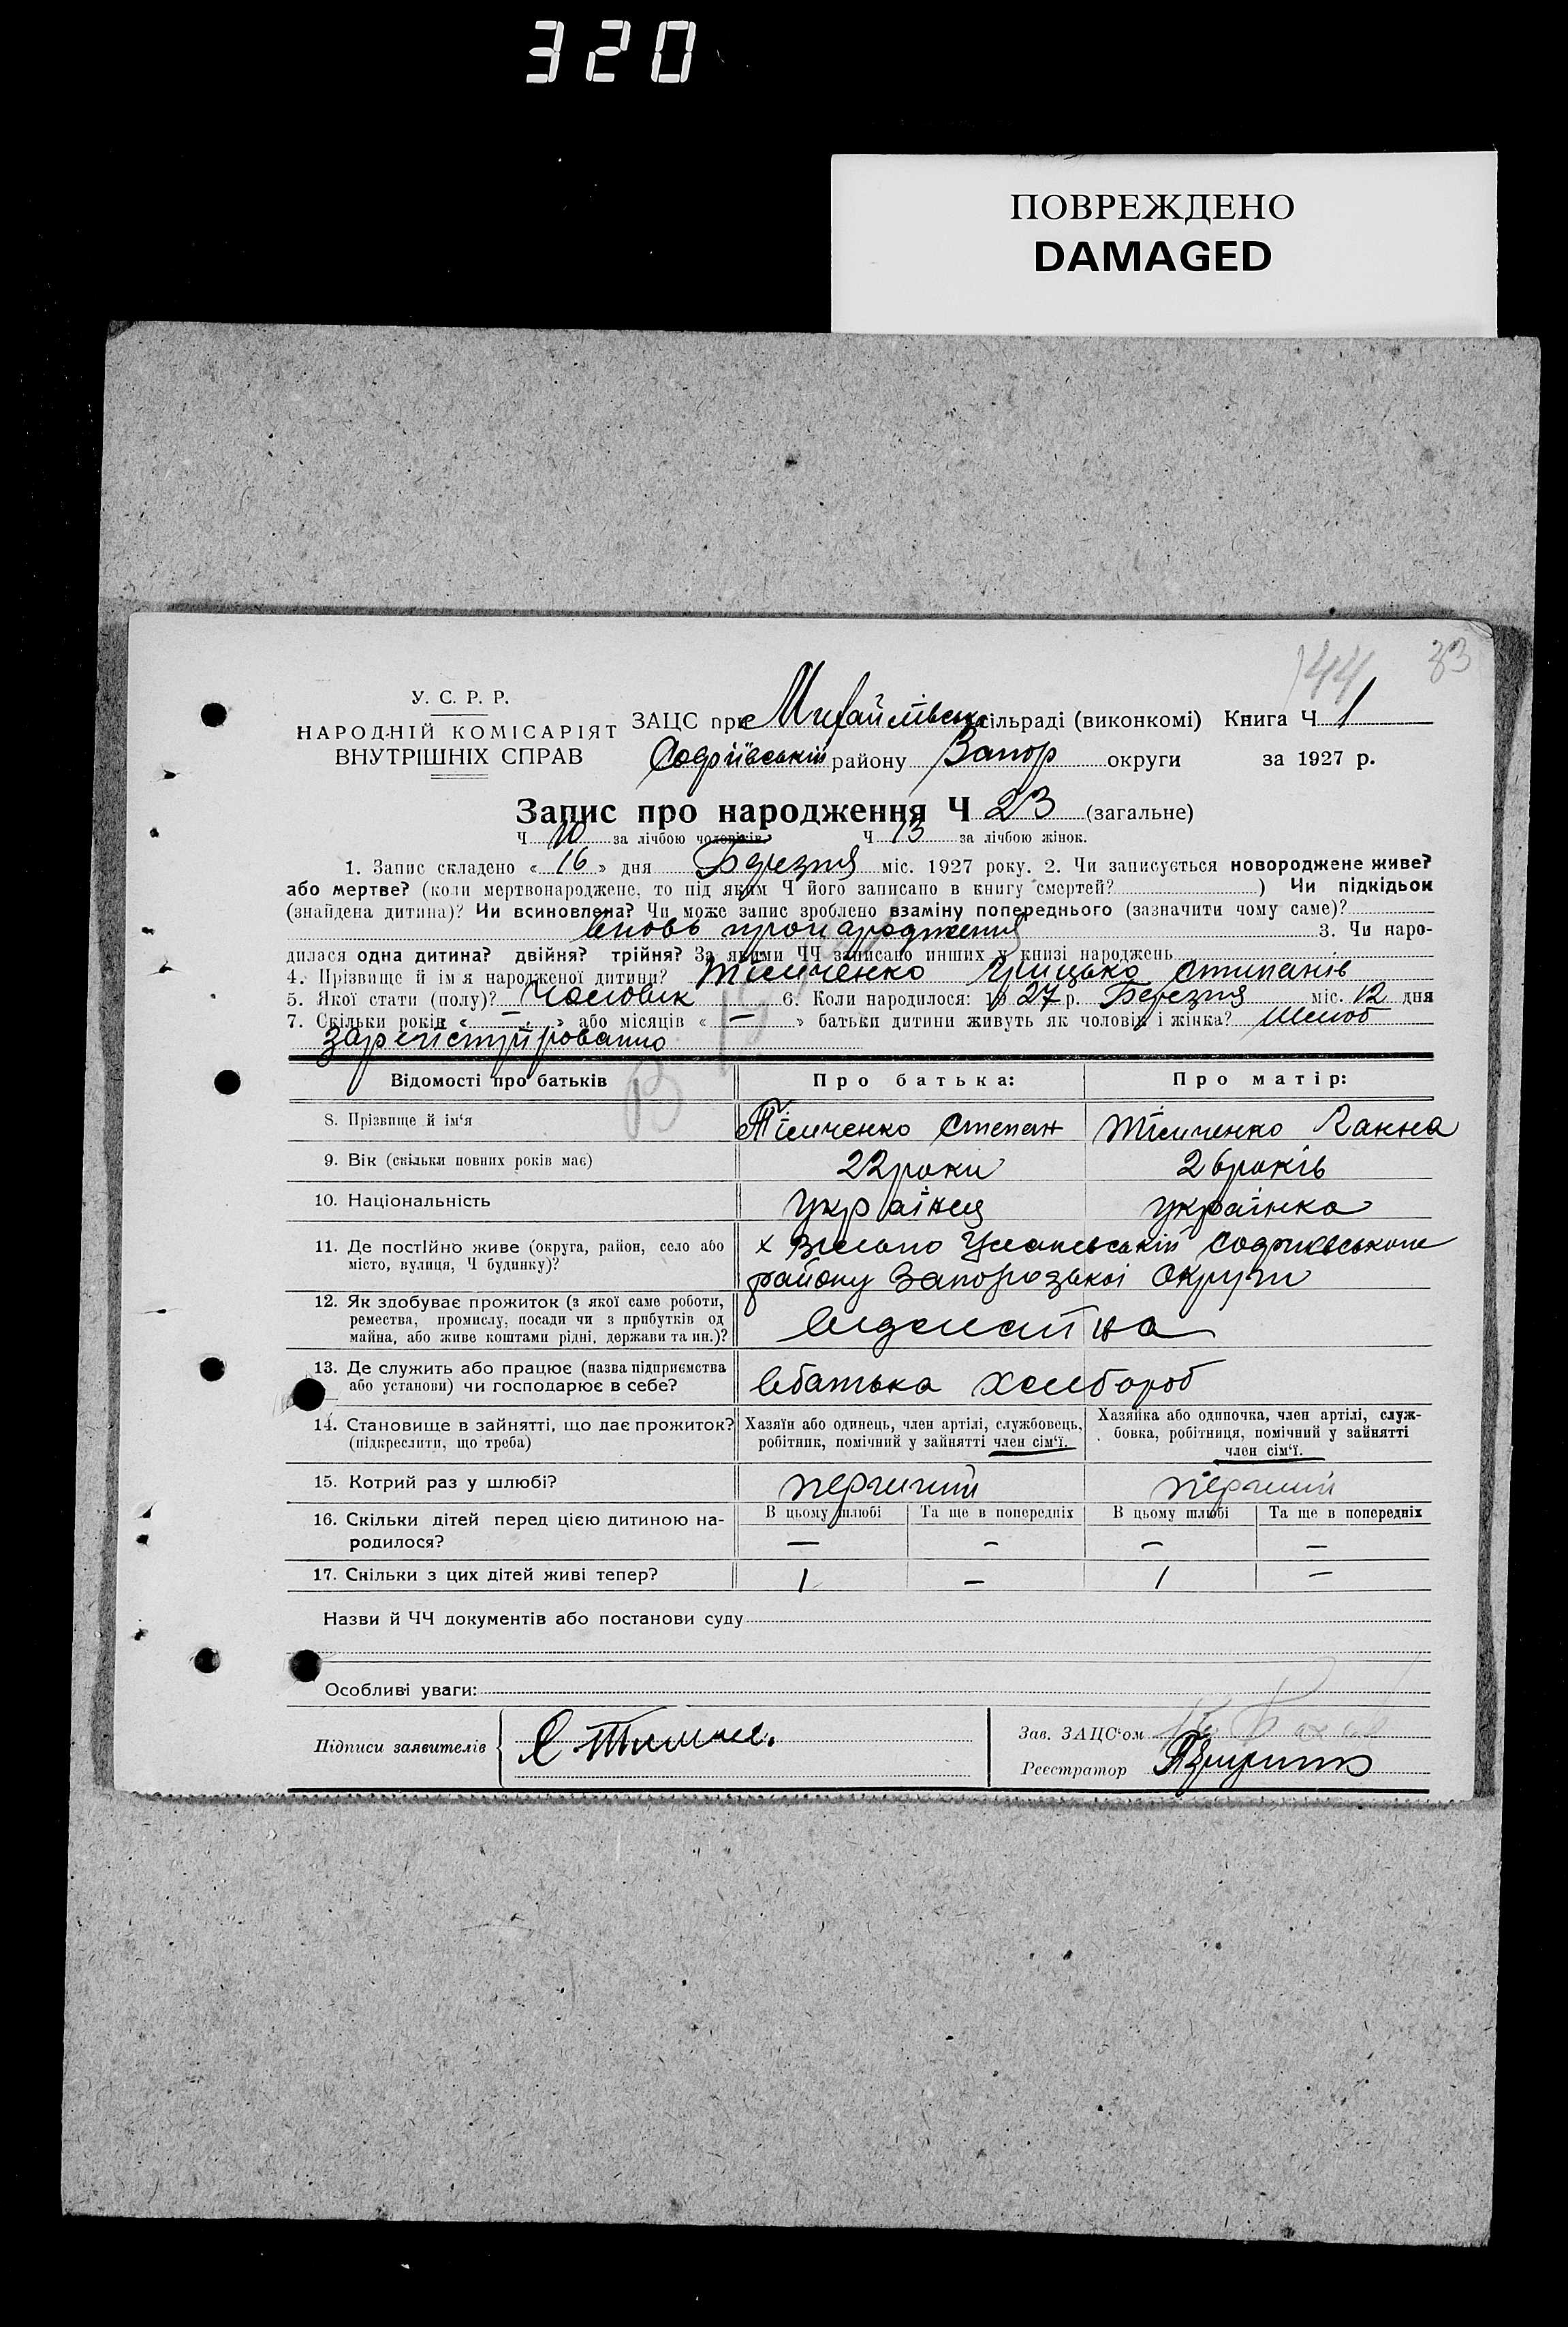 320
ПОВРЕЖДЕНО
DAMAGED
144 33
У. С. Р. Р.
НАРОДНІЙ КОМІСАРІЯТ
ВНУТРІШНІХ СПРАВ
ЗАЦС при Михайлівськ сільраді (виконкомі) Книга Ч 1
району Запор округи за 1927 р.
Запис про народження Ч 23 (загальне)
Ч 10 за лічбою чоловіків Ч 13 за лічбою жінок.
1. Запис складено « 16 » дня Березня міс. 1927 року. 2. Чи записується новороджене живе?
або мертве? (коли мертвонароджене, то під яким Ч його записано в книгу смертей? ) Чи підкідьок
(знайдена дитина)? Чи всиновлена? Чи може запис зроблено взаміну попереднього (зазначити чому саме)?
вновь пронародження 3. Чи наро-
дилася одна дитина? двійня? трійня? За якими ЧЧ записано инших у книзі народжень
4. Прізвище й ім'я народженої дитини? Тімченко Грицько Стипанів
5. Якої стати (полу)? Чоловик 6. Коли народилося: 1927 р. Березня міс. 12 дня
7. Скільки років « — » або місяців « — » батьки дитини живуть як чоловік і жінка? шлюб
зарегістріровано
Відомості про батьків Про батька: Про матір:
8. Прізвище й ім'я Тімченко Степан Тімченко Ганна
9. Вік (скільки повних років має) 22 роки 26 років
10. Національність українец українка
11. Де постійно живе (округа, район, село або
місто, вулиця, Ч будинку)?
району Запорозької Округи
12. Як здобуває прожиток (з якої саме роботи,
ремества, промислу, посади чи з прибутків од
майна, або живе коштами рідні, держави та ин.)?
13. Де служить або працює (назва підприємства
або установи) чи господарює в себе?
вбатька хлібороб
14. Становище в зайнятті, що дає прожиток?
(підкреслити, що треба)
Хазяїн або одинець, член артілі, службовець,
робітник, помічний у зайнятті член сім'ї.
Хазяйка або одиночка, член артілі, служ-
бовка, робітниця, помічний у зайнятті
член сім'ї.
15. Котрий раз у шлюбі? перший перший
16. Скільки дітей перед цією дитиною на-
родилося?
В цьому шлюбі Та ще в попередніх В цьому шлюбі Та ще в попередніх
— — — —
17. Скільки з цих дітей живі тепер? 1 — 1 —
Назви й ЧЧ документів або постанови суду
Особливі уваги:
Підписи заявителів
Зав. ЗАЦС'ом
Реєстратор